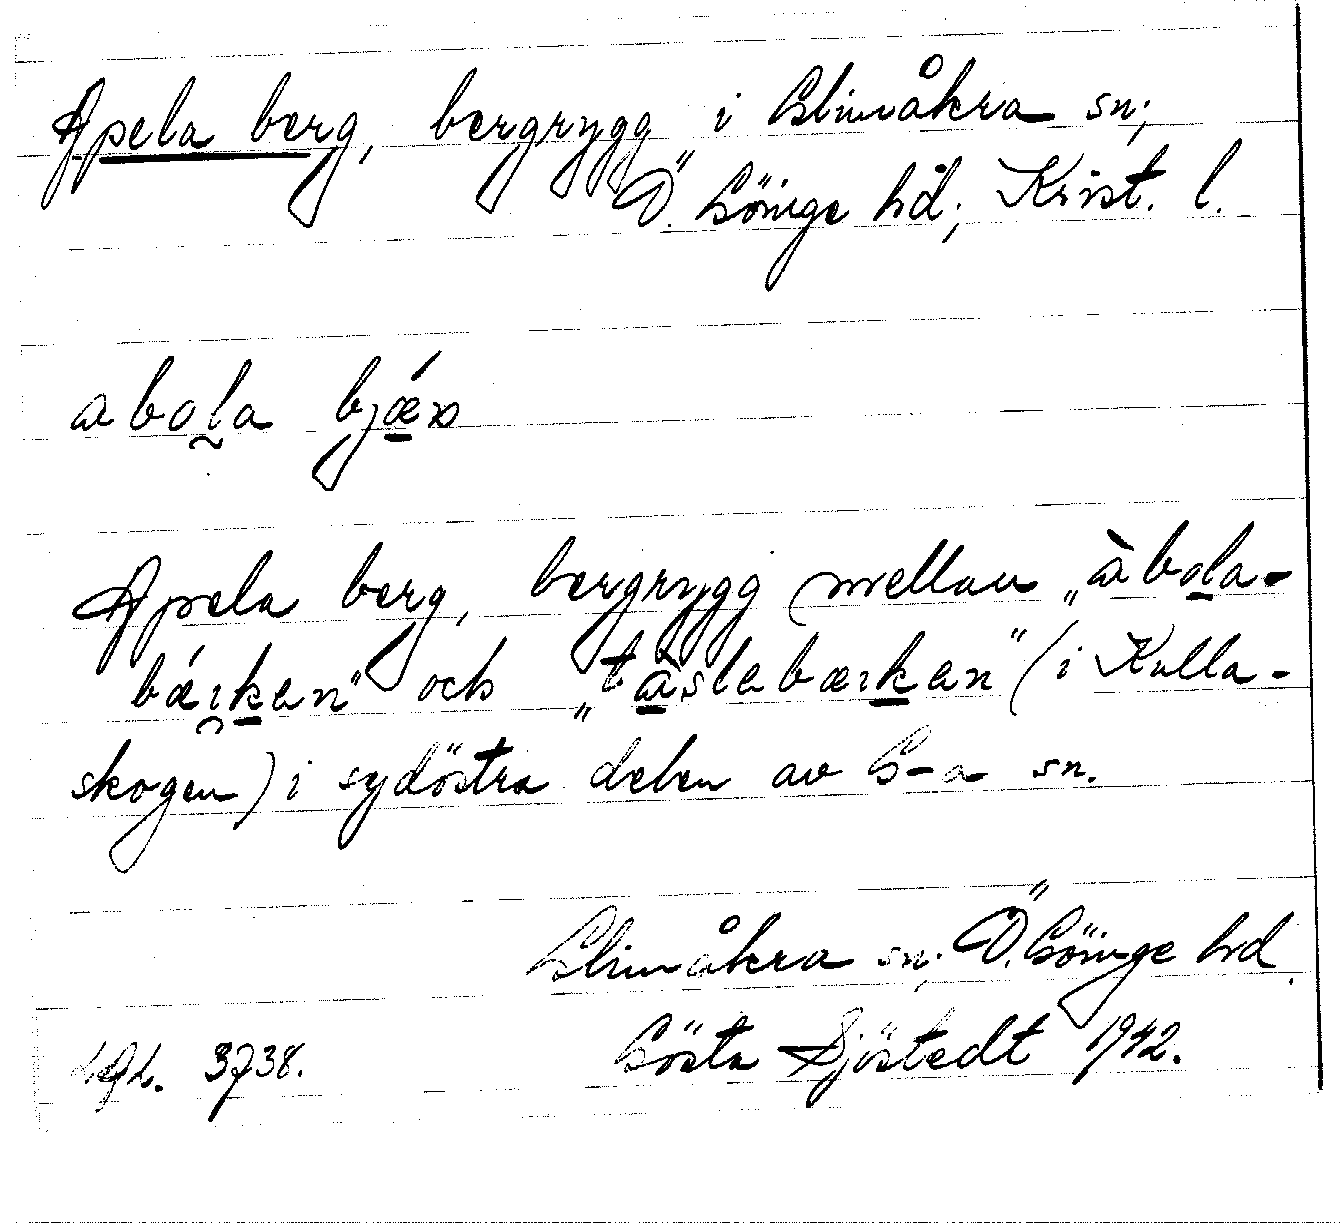 Apela berg, bergrygg i Glimåkra sn;
Ö. Göinge hd; Krist. l.
abola bjǽr
Apela berg, bergrygg (mellan „àbola-
bǽrkan" och „tàslabærkan" (i Kulla-
skogen) i sydöstra delen av G-a sn.
Glimåkra sn; Ö. Göinge hd.
Gösta Sjöstedt 1942.
3738.